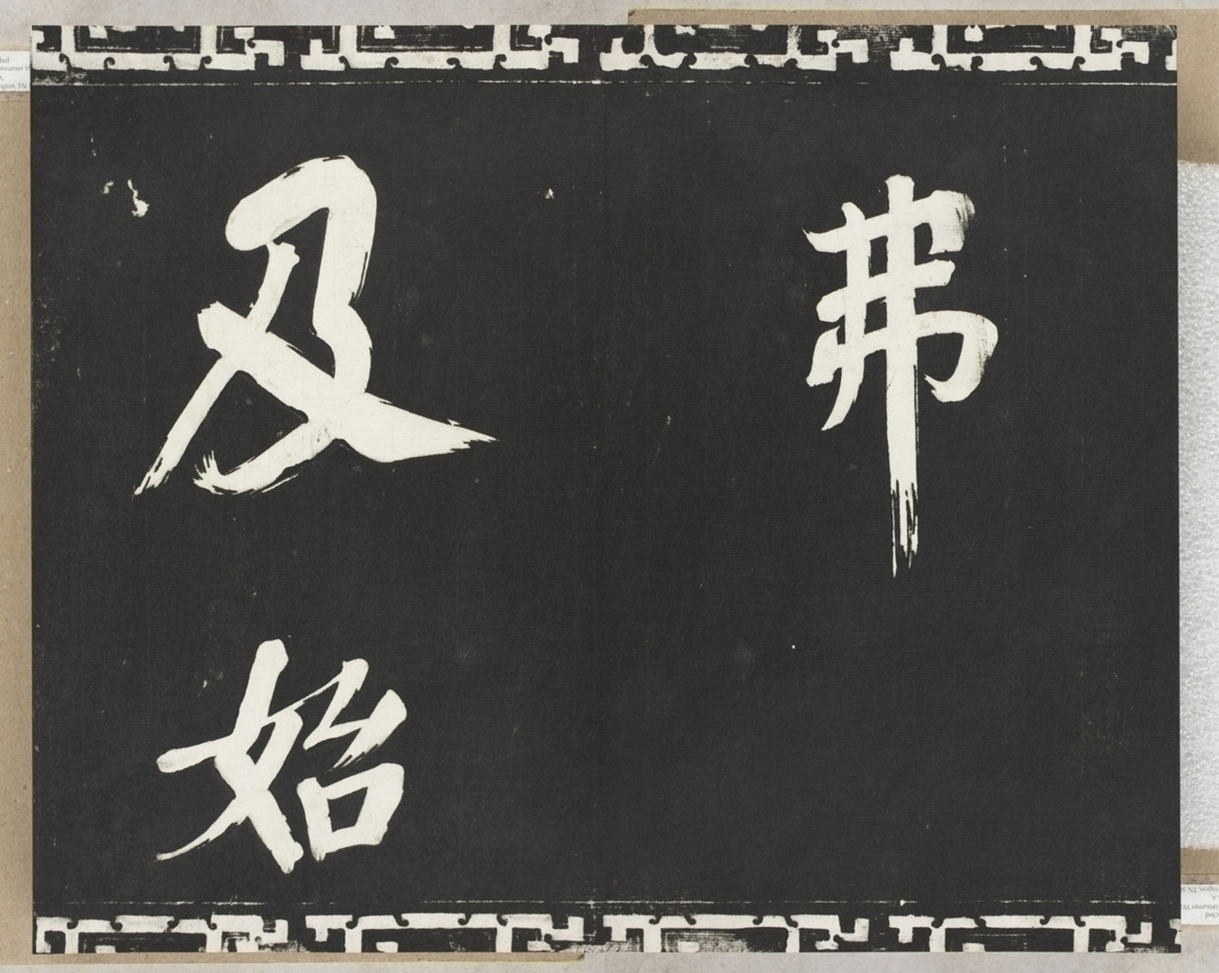 弗
及始